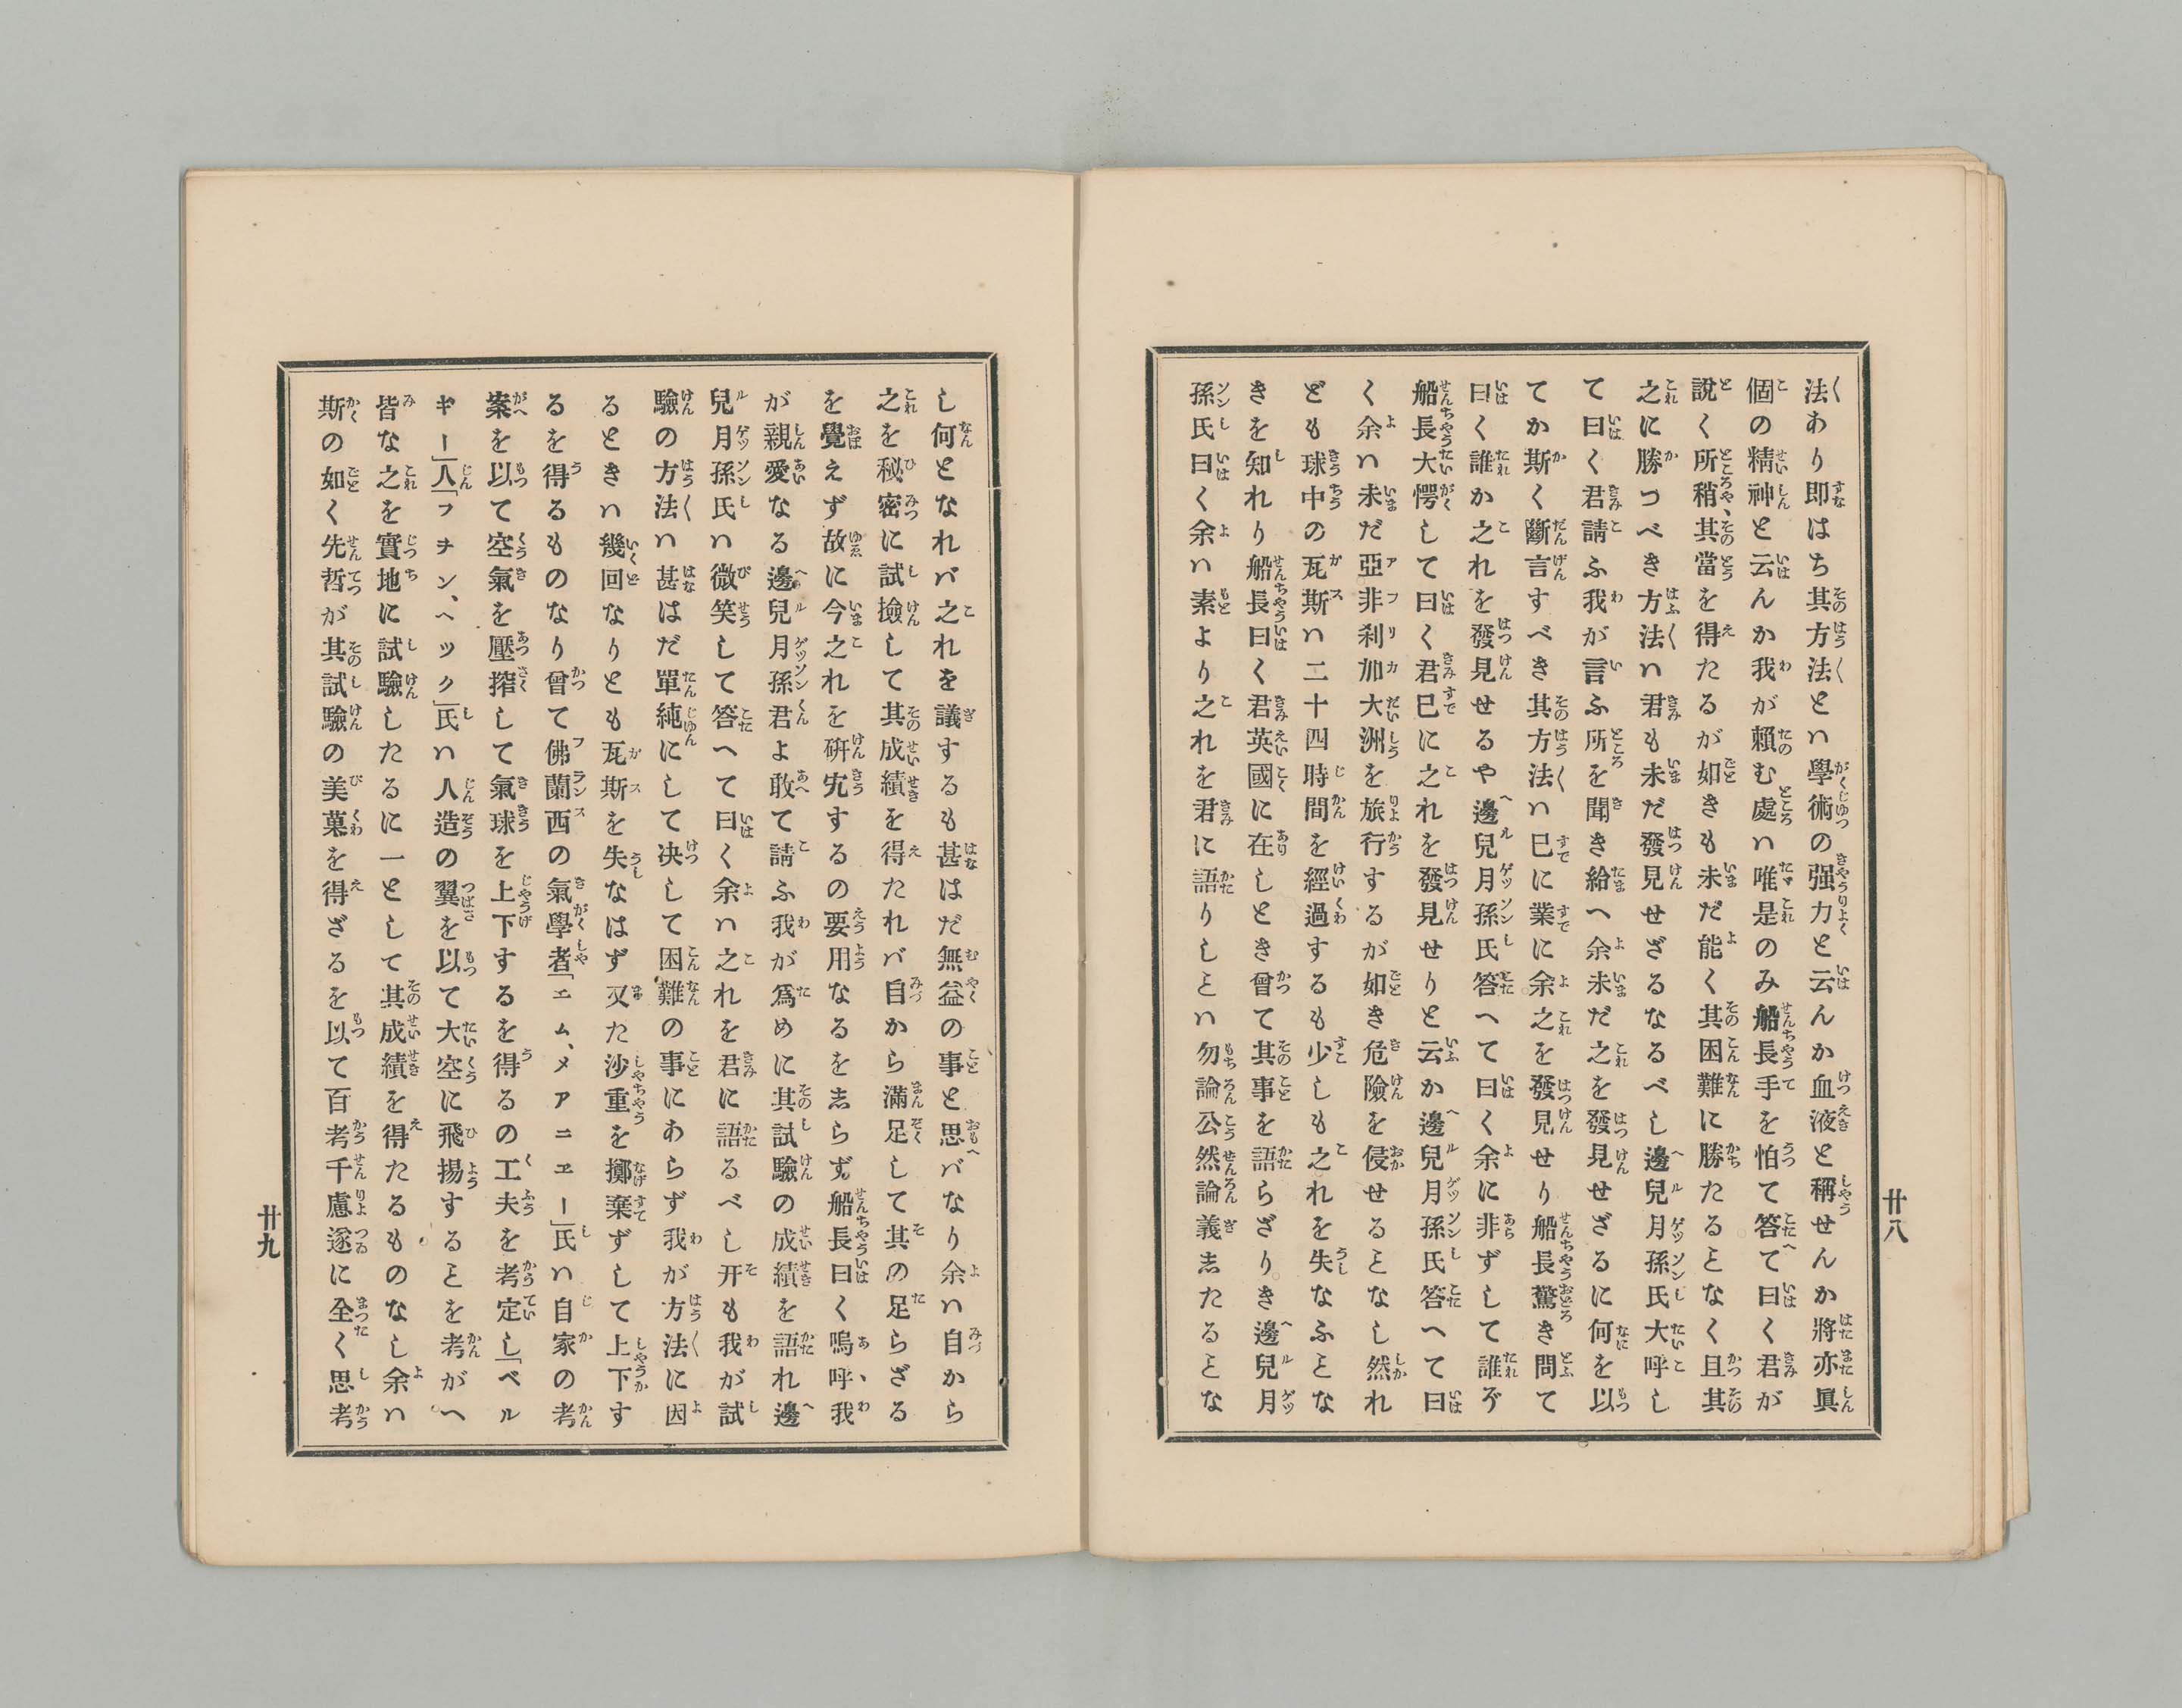 法あり即はち其方法とハ學術の强力と云んか血液と稱せんか將亦眞
個の精神と云んか我が賴む處ハ唯是のみ船長手を怕て答て曰く君が
說く所稍其當を得たるが如きも未だ能く其困難に勝たるヿなく且其
之に勝つべき方法ハ君も未だ發見せざるなるべし邊兒月孫氏大呼し
て曰く君請ふ我が言ふ所を聞き給へ余未だ之を發見せざるに何を以
てか斯く斷言すべき其方法ハ已に業に余之を發見せり船長驚き問て
曰く誰か之れを發見せるや邊兒月孫氏答へて曰く余に非ずして誰ぞ
船長大愕して曰く君已に之れを發見せりと云か邊兒月孫氏答へて曰
く余ハ未だ亞非利加大洲を旅行するが如き危險を侵せるヿなし然れ
ども球中の瓦斯ハ二十四時間を經過するも少しも之れを失なふヿな
きを知れり船長曰く君英國に在しとき曾て其事を語らざりき邊兒月
孫氏曰く余ハ素より之れを君に語りしヿハ勿論公然論義志たるヿな
廿八
し何となれバ之れを議するも甚はだ無益の事と思バなり余ハ自から
之を秘密に試撿して其成績を得たれバ自から滿足して其の足らざる
を覺えず故に今之れを硏究するの要用なるを志らず船長曰く嗚呼我
が親愛なる邊兒月孫君よ敢て請ふ我が爲めに其試驗の成績を語れ邊
兒月孫氏ハ微笑して答へて曰く余ハ之れを君に語るべし开も我が試
驗の方法ハ甚はだ單純にして決して困難の事にあらず我が方法に因
るときハ幾回なりとも瓦斯を失なはず又た沙重を擲棄ずして上下す
るを得るものなり曾て佛蘭西の氣學者「エム、メアニエー」氏ハ自家の考
案を以て空氣を壓搾して氣球を上下するを得るの工夫を考定し「ベル
ギー」人「フヲン、ヘック」氏ハ人造の翼を以て大空に飛揚するヿを考がへ
皆な之を實地に試驗したるに一として其成績を得たるものなし余ハ
斯の如く先哲が其試驗の美菓を得ざるを以て百考千慮遂に全く思考
廿九